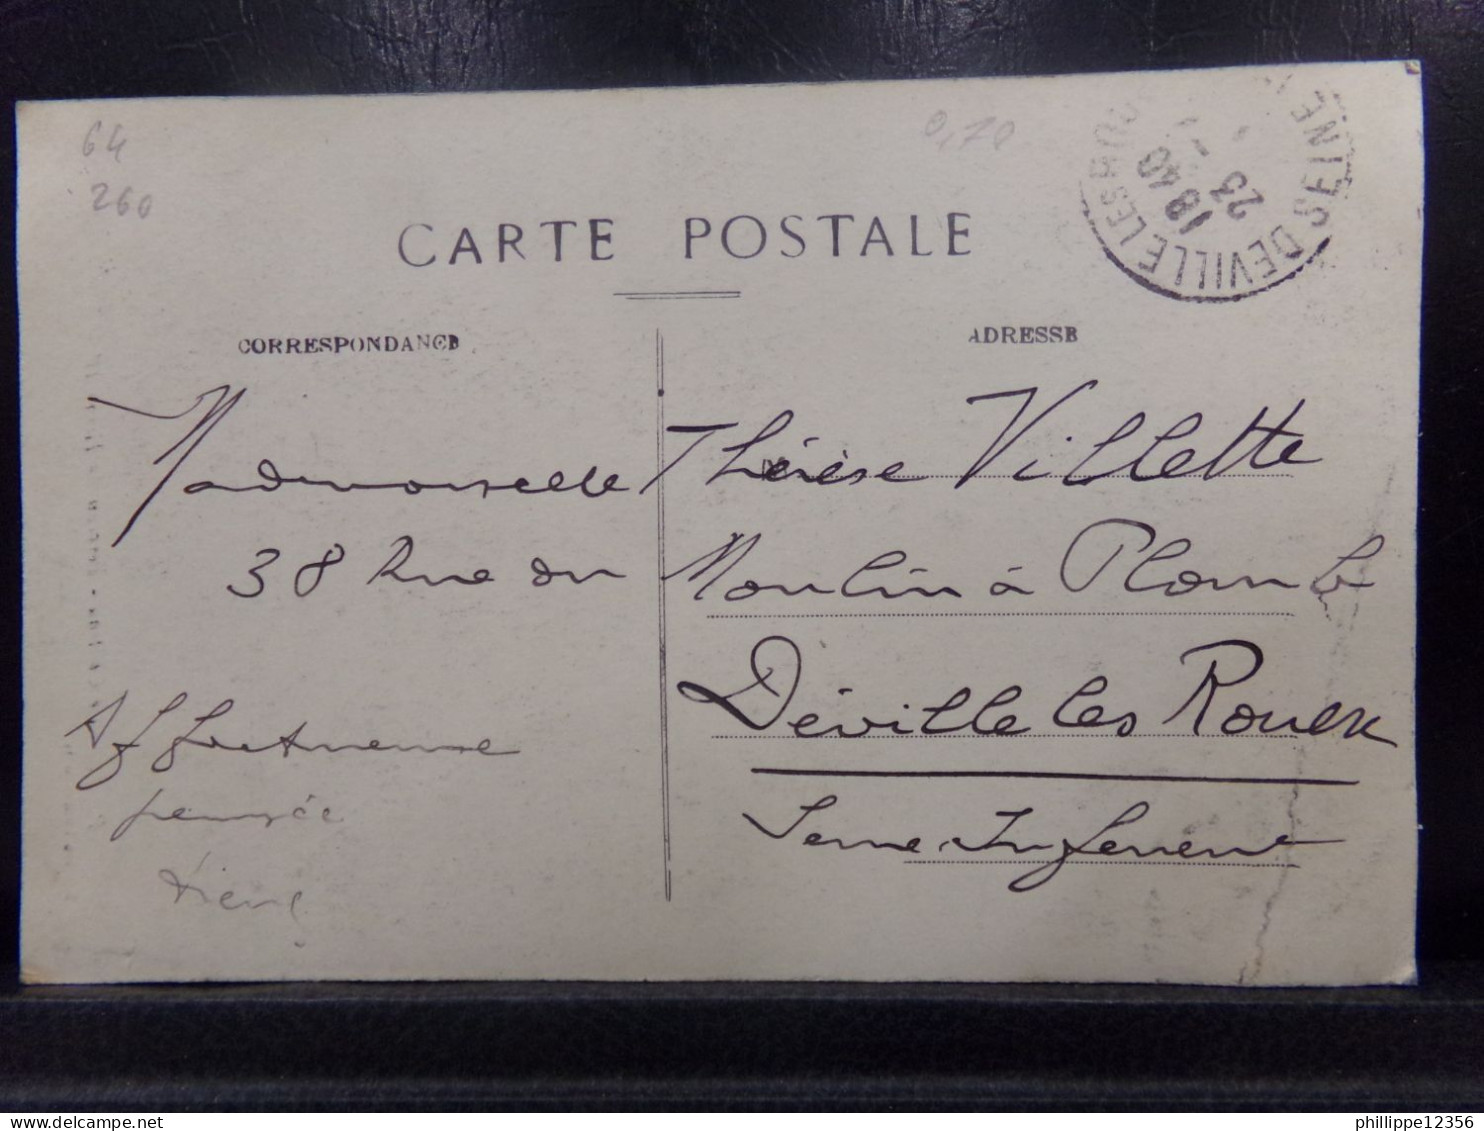 64
260
0,70
DEVILLE LES ROUEN
SEINE
18 40
23
CARTE POSTALE
CORRESPONDANCE
ADRESSE
Mademoiselle Thérèse Villette
38 Rue du Moulin à Plomb
Déville les Rouen
Seine Inférieure
Affectueuse
pensée
phillippe12356